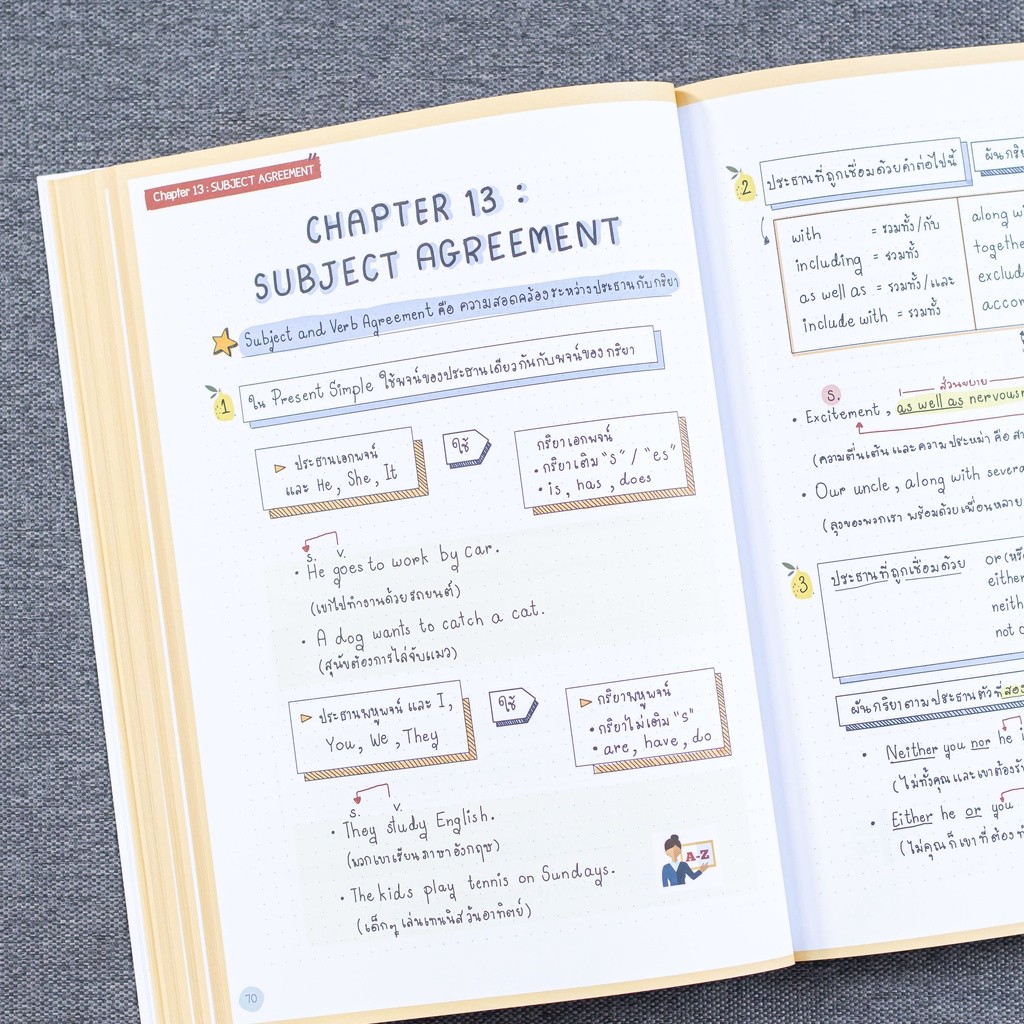 Chapter 13 : SUBJECT AGREEMENT
CHAPTER 13 :
SUBJECT AGREEMENT
Subject and Verb Agreement คือ ความสอดคล้องระหว่างประธานกับกริยา
1
ใน Present Simple ใช้พจน์ของประธานเดียวกันกับพจน์ของกริยา
ประธานเอกพจน์
และ He, She, It
ใช้
กริยาเอกพจน์
• กริยาเติม "s" / "es"
• is, has, does
s. v.
• He goes to work by car.
(เขาไปทำงานด้วยรถยนต์)
• A dog wants to catch a cat.
(สุนัขต้องการไล่จับแมว)
ประธานพหูพจน์ และ I,
You, We, They
ใช้
กริยาพหูพจน์
• กริยาไม่เติม "s"
• are, have, do
s. v.
• They study English.
(พวกเขาเรียนภาษาอังกฤษ)
• The kids play tennis on Sundays.
(เด็กๆ เล่นเทนนิสวันอาทิตย์)
A-Z
70
2
ประธานที่ถูกเชื่อมด้วยคำต่อไปนี้
with = รวมทั้ง/กับ
including = รวมทั้ง
as well as = รวมทั้ง/และ
include with = รวมทั้ง
along
s.
ส่วนขยาย
• Excitement, as well as
(ความตื่นเต้น และความประหม่า คือ
• Our uncle, along with
(ลุงของพวกเรา พร้อมด้วยเพื่อนหลาย
3
ประธานที่ถูกเชื่อมด้วย
or
ผันกริยาตามประธานตัวที่สอง
• Neither you nor he
(ไม่ทั้งคุณและเขาต้อง
• Either he or you
(ไม่คุณก็เขาที่ต้อง